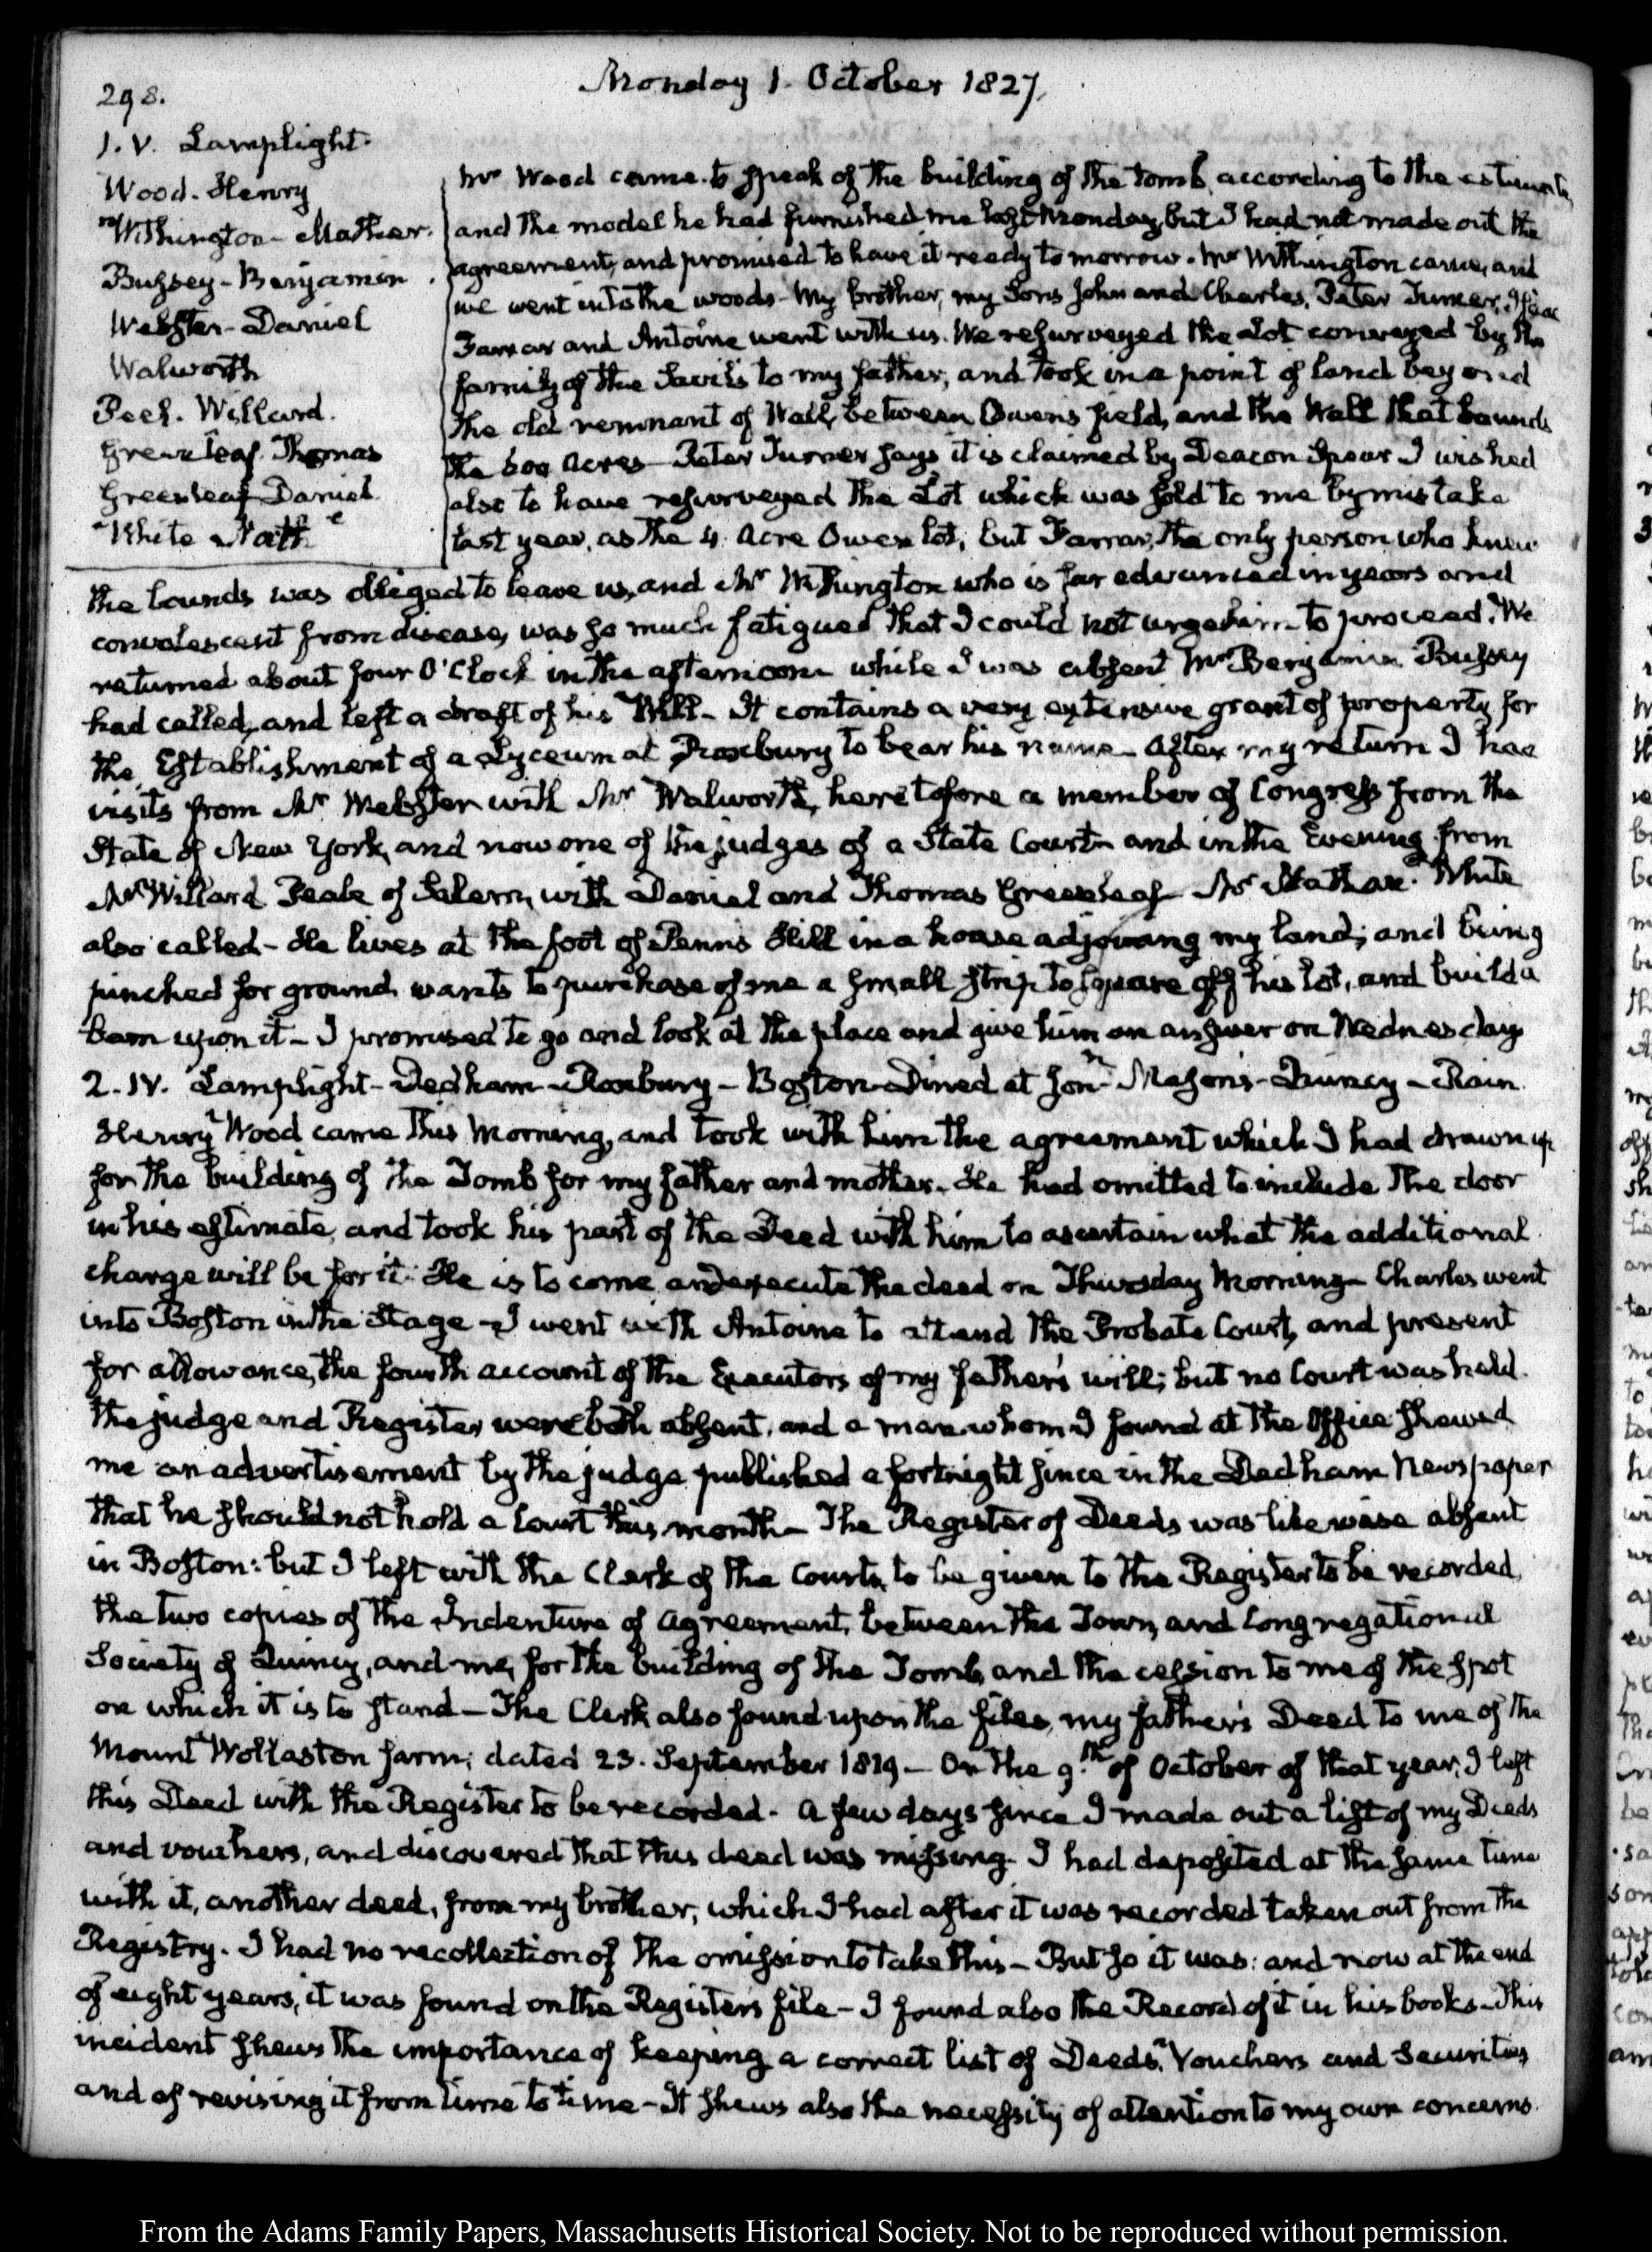 298.
Monday 1. October 1827.
1. V. Lamplight.
Wood. Henry
Withington - Mather.
Bussey - Benjamin
Webster - Daniel
Walworth
Peel. Willard.
Greenleaf. Thomas
Greenleaf Daniel
White Nath
Mr Wood came to speak of the building of the tomb, according to the estimate
and the model he had furnished me last Monday, but I had not made out the
agreement, and promised to have it ready to morrow. Mr Withington came, and
we went into the woods - My brother, my Sons John and Charles, Peter Turner,
Farrar and Antoine went with us. We resurveyed the Lot conveyed by the
family of the Savils to my father, and took in a point of land beyond
the old remnant of Wall, between Owens field, and the Wall that bounds
the 600 Acres - Peter Turner says it is claimed by Deacon Spear I wished
also to have resurveyed the Lot which was sold to me by mistake
last year, as the 4 Acre Owen lot, but Farrar, the only person who knew
the bounds was obliged to leave us, and Mr Withington who is far advanced in years and
convalescent from disease, was so much fatigued that I could not urge him to proceed. We
returned about four O'Clock in the afternoon while I was absent Mr Benjamin Bussey
had called, and left a draft of his Will - It contains a very extensive grant of property for
the Establishment of a Lyceum at Roxbury to bear his name - After my return I had
visits from Mr Webster with Mr Walworth, heretofore a member of Congress from the
State of New York, and now one of the judges of a State Court - and in the Evening from
Mr Willard Peale of Salem, with Daniel and Thomas Greenleaf - Mr Nathan. White
also called - He lives at the foot of Penn's Hill in a house adjoining my land; and being
pinched for ground wants to purchase of me a small strip to square off his lot, and build a
barn upon it - I promised to go and look at the place and give him an answer on Wednesday
2. IV. Lamplight - Dedham - Roxbury - Boston - Dined at Jonn Mason's - Quincy - Rain
Henry Wood came this Morning, and took with him the agreement which I had drawn up
for the building of the Tomb for my father and mother. He had omitted to include the door
in his estimate, and took his part of the Deed with him to ascertain what the additional
charge will be for it. He is to come and execute the deed on Thursday Morning - Charles went
into Boston in the Stage - I went with Antoine to attend the Probate Court, and present
for allowance, the fourth account of the Executors of my father's will; but no Court was held.
the judge and Register were both absent, and a man whom I found at the Office shewed
me an advertisement by the judge published a fortnight since in the Dedham Newspaper
that he should not hold a Court this month - The Register of Deeds was likewise absent
in Boston: but I left with the Clerk of the Courts, to be given to the Register to be recorded,
the two copies of the Indenture of agreement, between the Town, and Congregational
Society of Quincy, and me, for the building of the Tomb, and the cession to me of the spot
on which it is to stand - The Clerk also found upon the files, my father's Deed to me of the
Mount Wollaston farm; dated 23. September 1819 - On the 9.th of October of that year, I left
this Deed with the Register to be recorded. A few days since I made out a list of my Deeds
and vouchers, and discovered that this deed was missing. I had deposited at the same time
with it, another deed, from my brother, which I had after it was recorded taken out from the
Registry. I had no recollection of the omission to take this - But so it was: and now at the end
of eight years, it was found on the Register's file - I found also the Record of it in his books - This
incident shews the importance of keeping a correct list of Deeds, Vouchers and Securities
and of revising it from time to time - It shews also the necessity of attention to my own concerns.
From the Adams Family Papers, Massachusetts Historical Society. Not to be reproduced without permission.